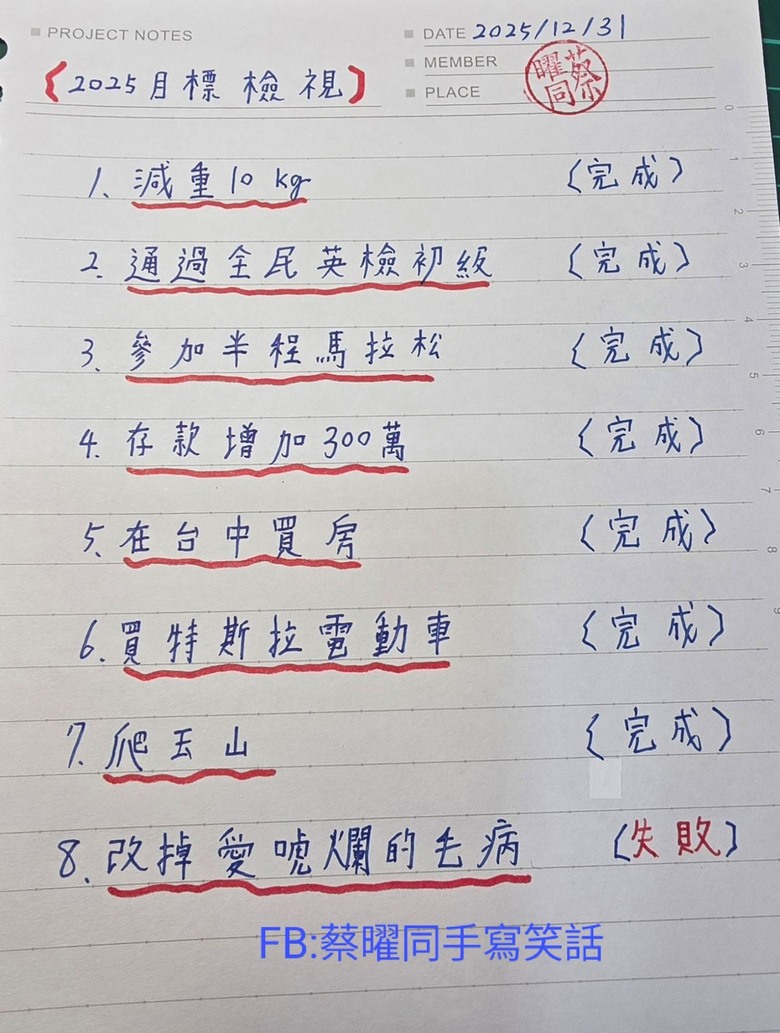 PROJECT NOTES
DATE 2025/12/31
MEMBER
PLACE
蔡曜同
{2025目標檢視}
1、減重10 kg (完成)
2、通過全民英檢初級 (完成)
3、參加半程馬拉松 (完成)
4、存款增加300萬 (完成)
5、在台中買房 (完成)
6、買特斯拉電動車 (完成)
7、爬玉山 (完成)
8、改掉愛唬爛的毛病 (失敗)
FB:蔡曜同手寫笑話
0
1
2
3
4
5
6
7
8
9